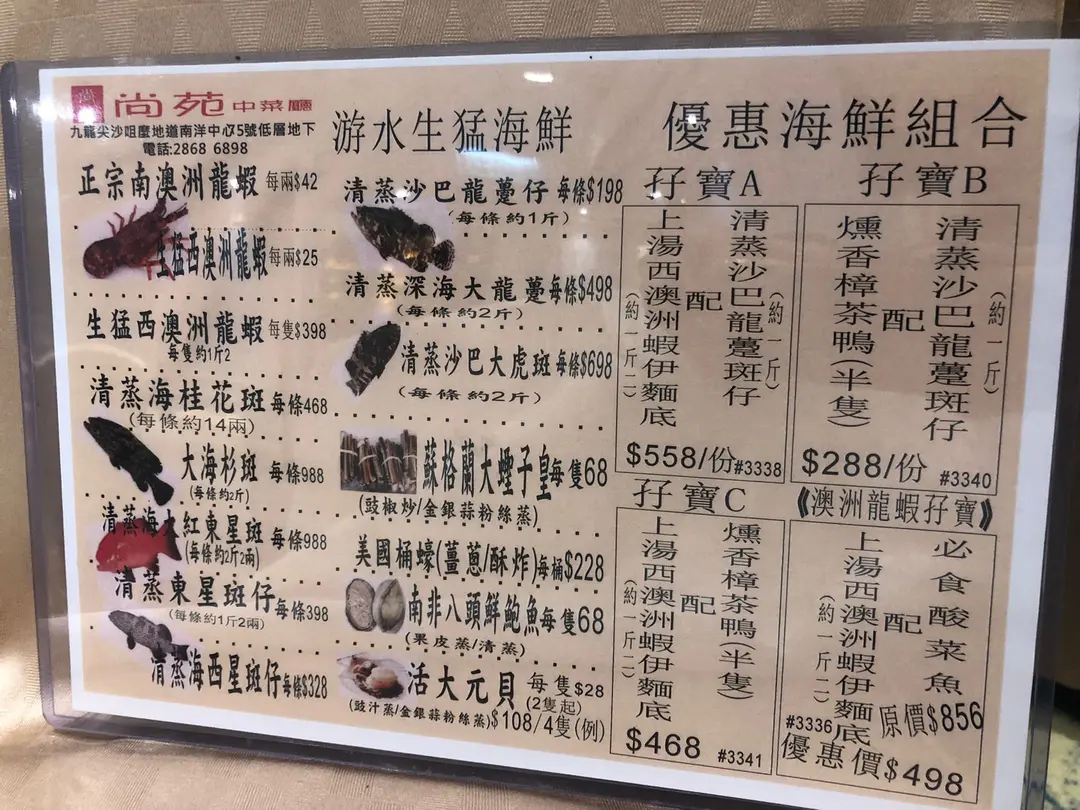 尚
尚苑中菜廳
九龍尖沙咀麼地道南洋中心5號低層地下
電話:2868 6898
正宗南澳洲龍蝦 每兩$42
生猛西澳洲龍蝦 每兩$25
生猛西澳洲龍蝦 每隻$398
每隻約1斤2
清蒸海桂花斑 每條468
(每條約14兩)
大海杉斑 每條988
(每條約2斤)
清蒸海 紅東星斑 每條988
(每條約2斤2兩)
清蒸東星斑仔 每條398
(每條約1斤2兩)
清蒸海西星斑仔 每條$328
游水生猛海鮮
清蒸沙巴龍躉仔 每條$198
(每條約1斤)
清蒸深海大龍躉 每條$498
(每條約2斤)
清蒸沙巴大虎斑 每條$698
(每條約2斤)
蘇格蘭大蟶子皇 每隻68
(豉椒炒/金銀蒜粉絲蒸)
美國桶蠔(薑蔥/酥炸) 每桶$228
南非八頭鮮鮑魚 每隻68
(果皮蒸/清蒸)
活大元貝 每隻$28
(2隻起)
(豉汁蒸/金銀蒜粉絲蒸) $108/4隻(例)
優惠海鮮組合
孖寶A
清蒸沙巴龍躉斑仔
(約一斤)
配
上湯西澳洲蝦伊麵底
(約一斤二)
$558/份 #3338
孖寶B
清蒸沙巴龍躉斑仔
(約一斤)
配
燻香樟茶鴨(半隻)
$288/份 #3340
孖寶C
燻香樟茶鴨(半隻)
配
上湯西澳洲蝦伊麵底
(約一斤二)
$468 #3341
《澳洲龍蝦孖寶》
必食酸菜魚
配
上湯西澳洲蝦伊麵底
(約一斤二)
原價$856
#3336
優惠價$498